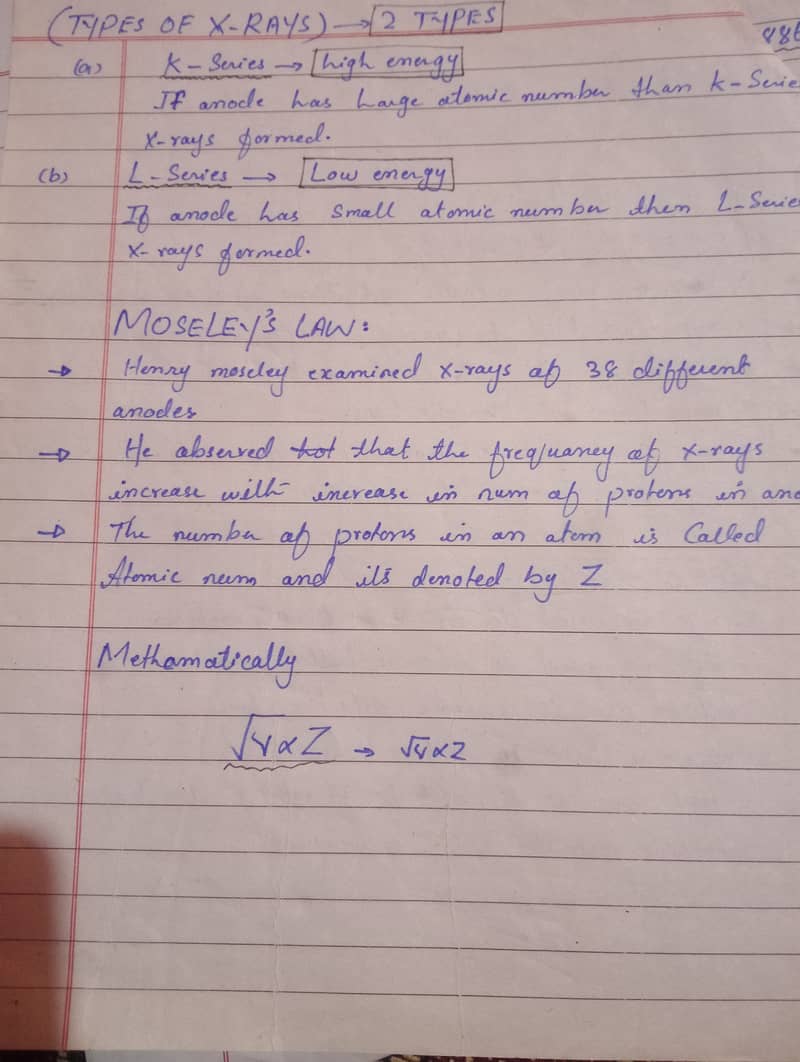 (TYPES OF X-RAYS) → 2 TYPES
(a) K-Series → high energy
If anode has large atomic number than K-Serie
X-rays formed.
(b) L-Series → Low energy
If anode has small atomic number then L-Serie
X-rays formed.
MOSELEY'S LAW:
→ Henry moseley examined x-rays of 38 different
anodes
→ He observed that the frequaney of x-rays
increase with increase in num of protons in ano
→ The number of protons in an atom is Called
Atomic num and it's denoted by Z
Methamatically
√ν ∝ Z → √ν ∝ Z